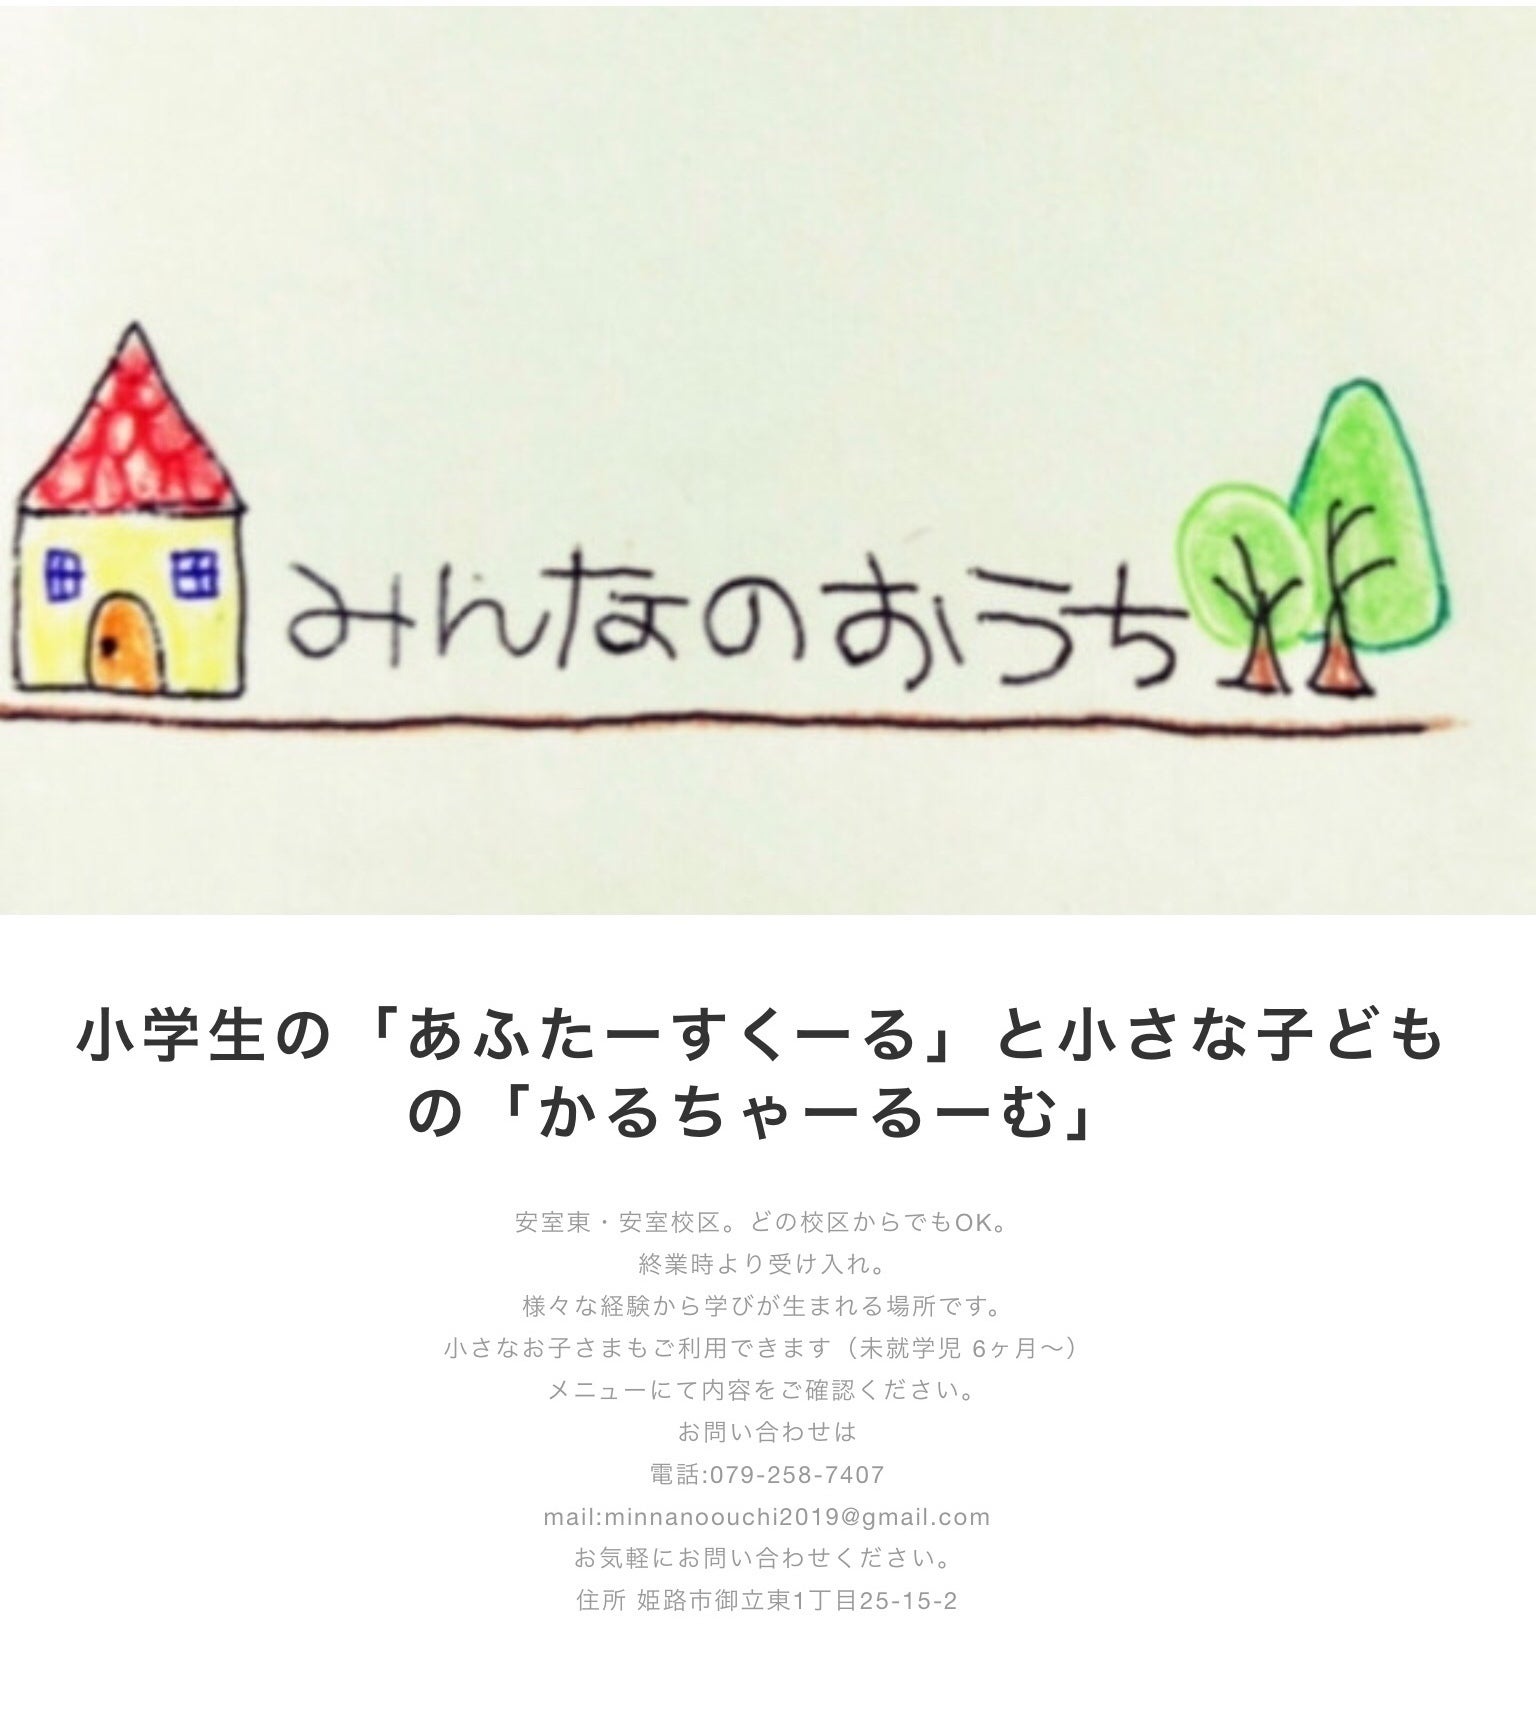 みんなのおうち
小学生の「あふたーすくーる」と小さな子ども
の「かるちゃーるーむ」
安室東・安室校区。どの校区からでもOK。
終業時より受け入れ。
様々な経験から学びが生まれる場所です。
小さなお子さまもご利用できます（未就学児 6ヶ月〜）
メニューにて内容をご確認ください。
お問い合わせは
電話:079-258-7407
mail:minnanoouchi2019@gmail.com
お気軽にお問い合わせください。
住所 姫路市御立東1丁目25-15-2